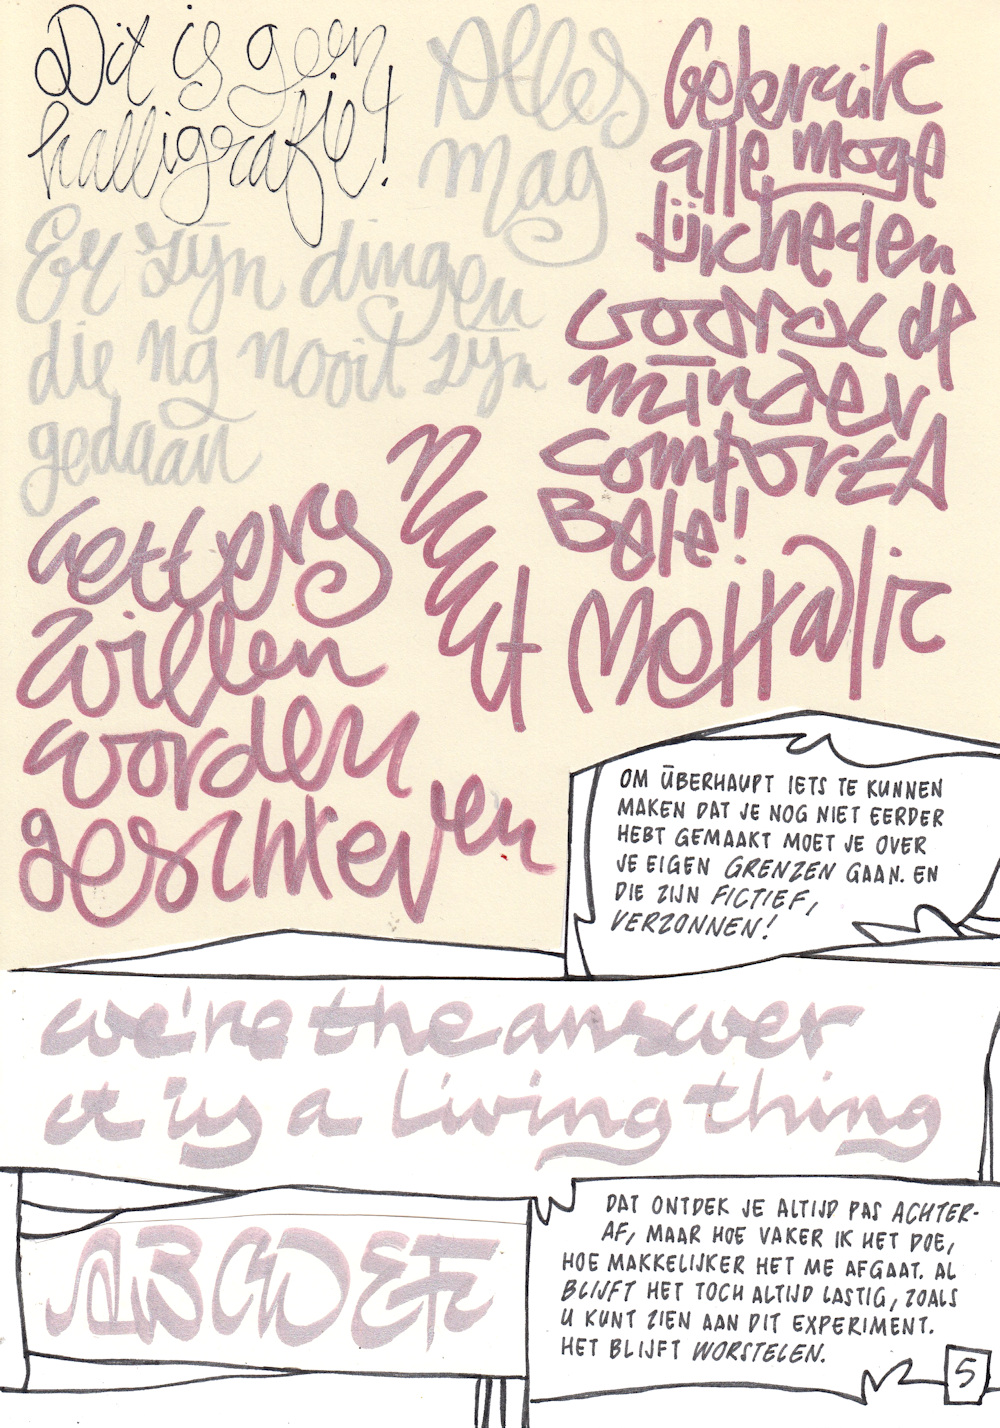 Dit is geen
kalligrafie!
Alles
mag
Er zijn dingen
die ng nooit zijn
gedaan
Gebruik
alle moge
lijkheden
vooral de
minder
comforta
Bele!!
Letters
willen
worden
geschreven
Metallic
OM ÜBERHAUPT IETS TE KUNNEN
MAKEN DAT JE NOG NIET EERDER
HEBT GEMAAKT MOET JE OVER
JE EIGEN GRENZEN GAAN. EN
DIE ZIJN FICTIEF,
VERZONNEN!
we're the answer
it is a living thing
ABCDEF
DAT ONTDEK JE ALTIJD PAS ACHTER-
AF, MAAR HOE VAKER IK HET DOE,
HOE MAKKELIJKER HET ME AFGAAT. AL
BLIJFT HET TOCH ALTIJD LASTIG, ZOALS
U KUNT ZIEN AAN DIT EXPERIMENT.
HET BLIJFT WORSTELEN.
5